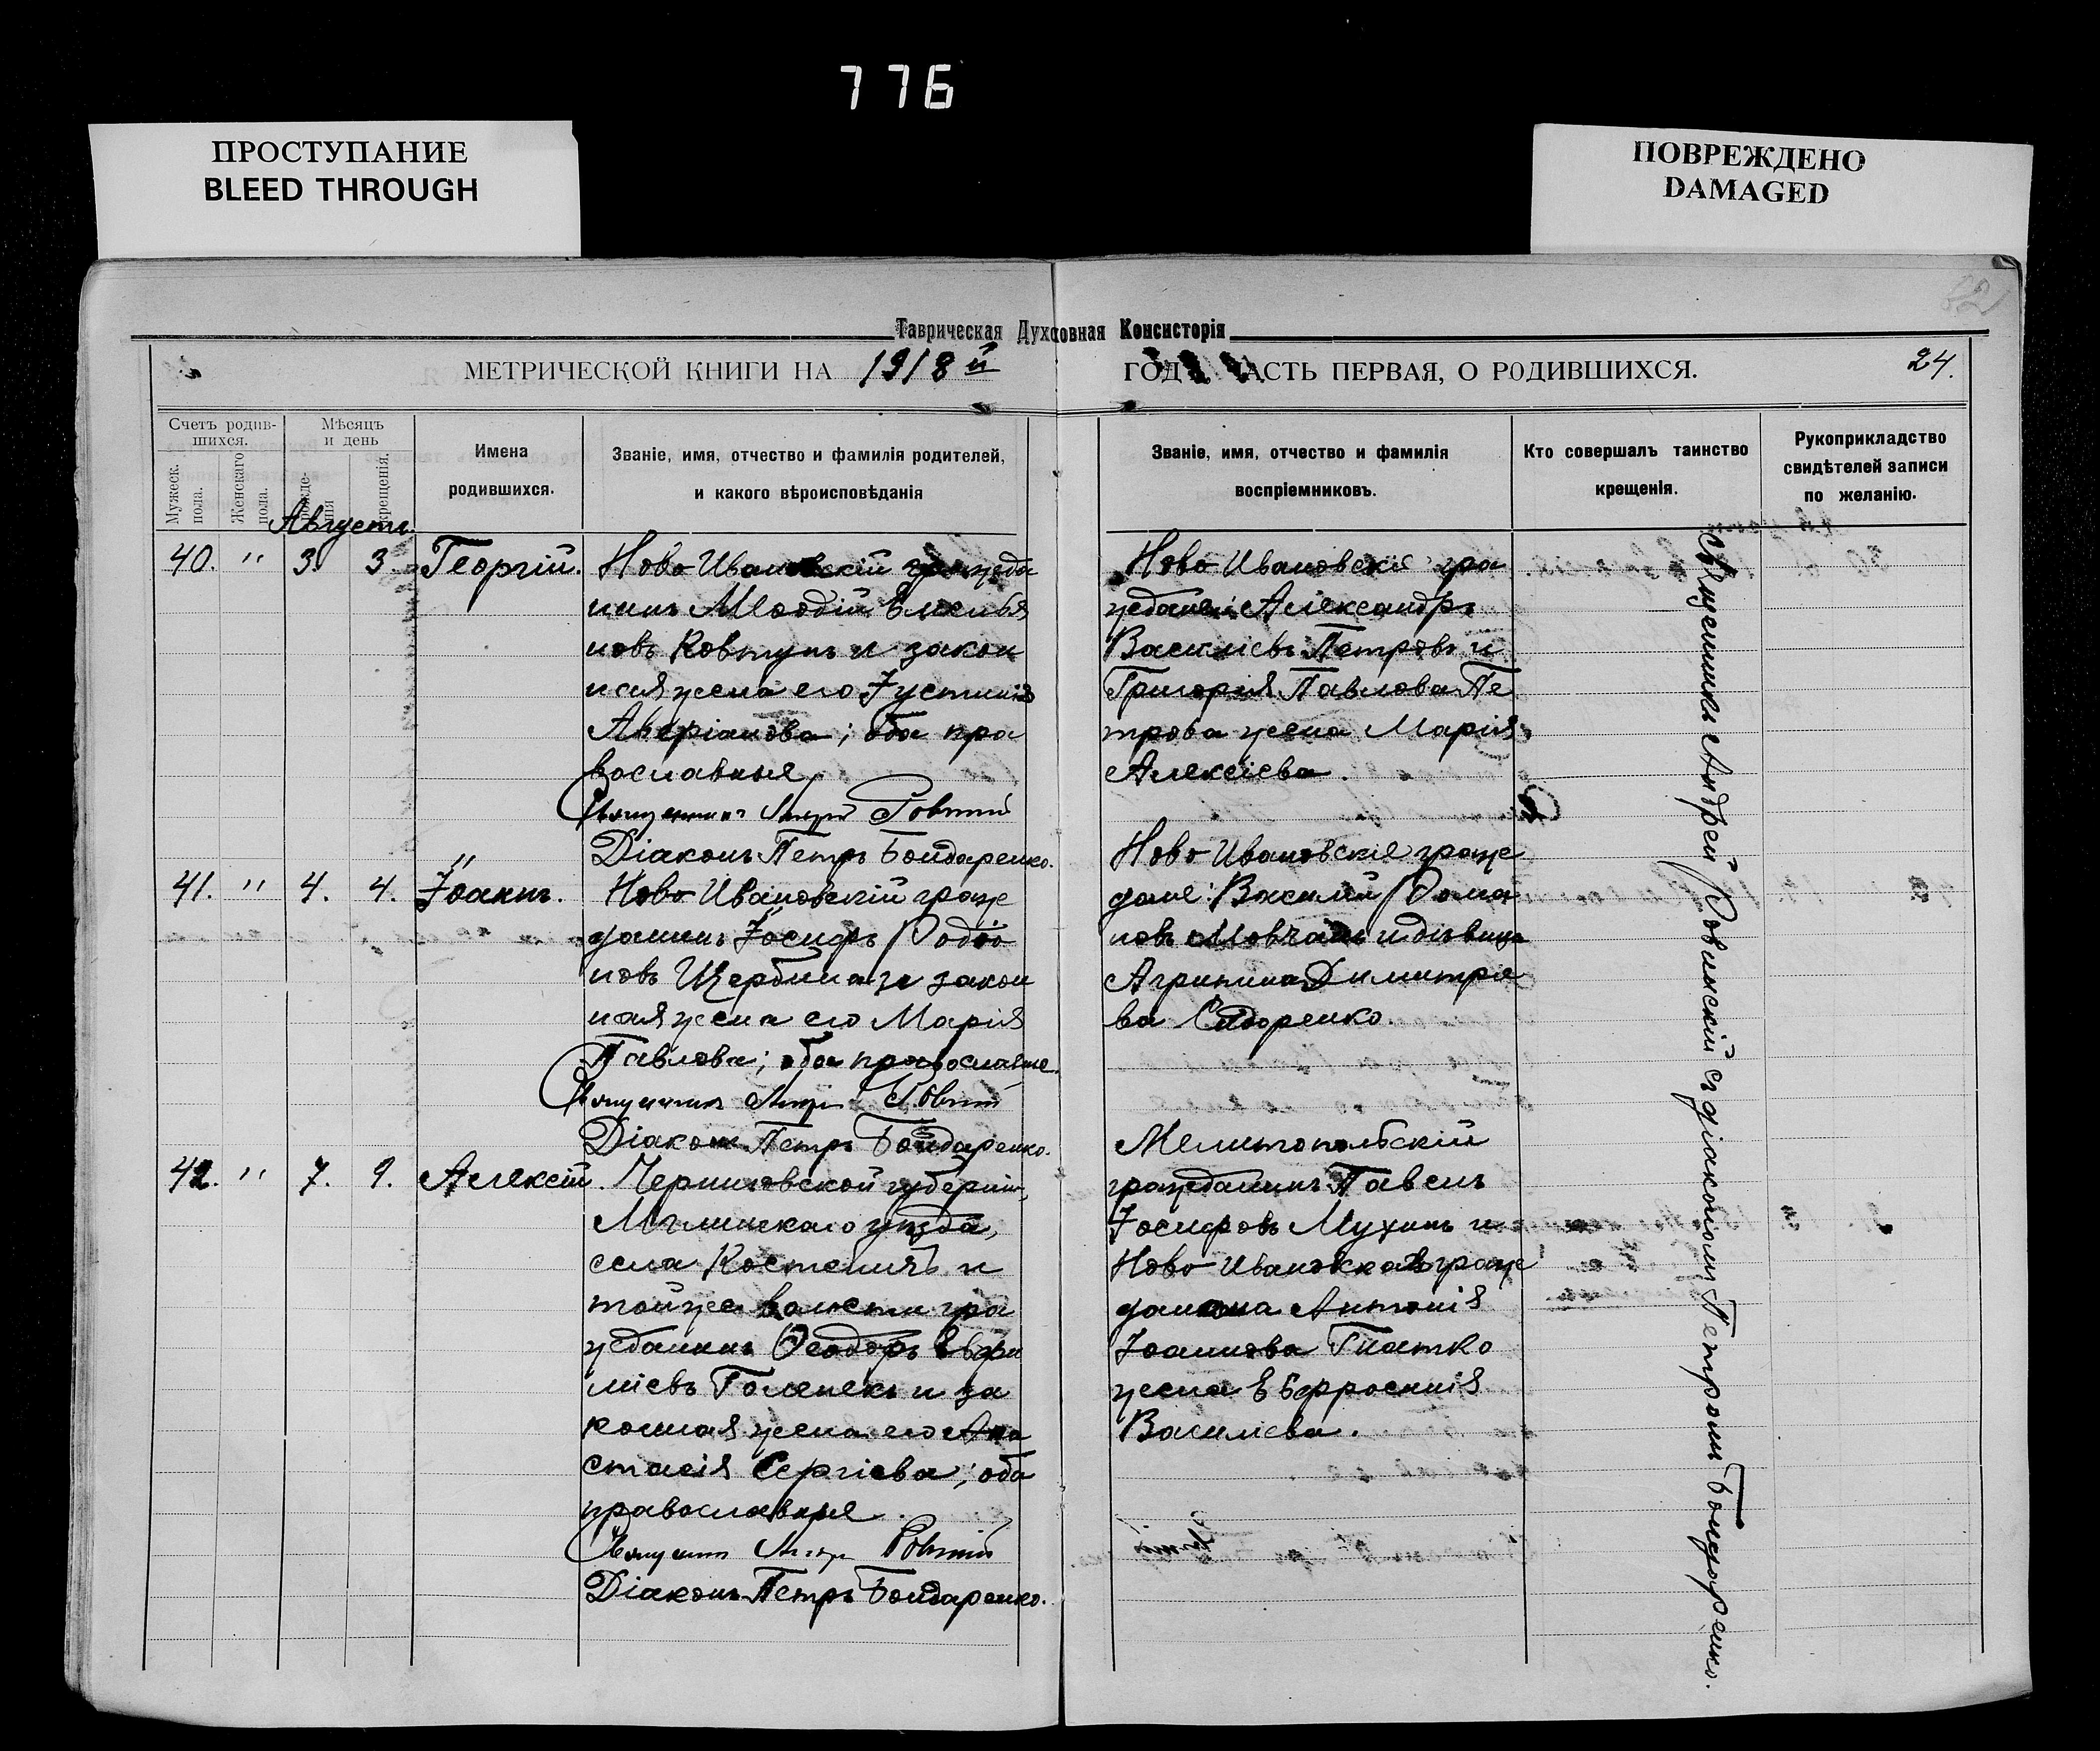 776
ПРОСТУПАНИЕ
BLEED THROUGH
ПОВРЕЖДЕНО
DAMAGED
Таврическая Духовная Консисторія
МЕТРИЧЕСКОЙ КНИГИ НА 1918й
ГОДЪ ЧАСТЬ ПЕРВАЯ, О РОДИВШИХСЯ.
24.
Счетъ родив-
шихся.
Мужеск.
пола.
Женскаго
пола.
Мѣсяцъ
и день
рожде-
нія
крещенія.
Имена
родившихся.
Званіе, имя, отчество и фамилія родителей,
и какого вѣроисповѣданія
Званіе, имя, отчество и фамилія
воспріемниковъ.
Кто совершалъ таинство
крещенія.
Рукоприкладство
свидѣтелей записи
по желанію.
Августъ.
40. " 3 3. Георгій.
Ново-Ивановскій гражда
нинъ Емелья
новъ Ковтунъ и закон
ная жена его Іустинія
Аверіанова; оба пра
вославные.
Священникъ Андрей Ровинскій
Діаконъ Петръ Бондаренко.
Ново-Ивановскіе гра
ждане: Александръ
Василіевъ Петровъ и
Григорія Павлова Пе
трова жена Марія
Алексіева.
41. " 4. 4. Іоаннъ.
Ново-Ивановскій граж
данинъ Іосифъ Родіо
новъ Щербина и закон
ная жена его Марія
Павлова; оба православные.
Священникъ Андрей Ровинскій
Діаконъ Петръ Бондаренко.
Ново-Ивановскіе граж
дане: Василій Рома
новъ Мовчанъ и дѣвица
Агрипина Димитріе
ва Сидоренко.
42. " 7. 9. Алексій.
Черниговской губерніи,
Мглинскаго уѣзда,
села Костеничъ и
той же волости гра
жданинъ Ѳеодоръ Евфи
міевъ Голенекъ и за
конная жена его Ана
стасія Сергіева; оба
православные.
Священникъ Андрей Ровинскій
Діаконъ Петръ Бондаренко.
Мелитопольскій
гражданинъ Павелъ
Іосифовъ Мухинъ и
Ново-Ивановскаго граж
данина Антонія
Іоаннова Гнатко
жена Евфросинія
Василіева.
Священникъ Андрей Ровинскій съ діакономъ Петромъ Бондаренко.